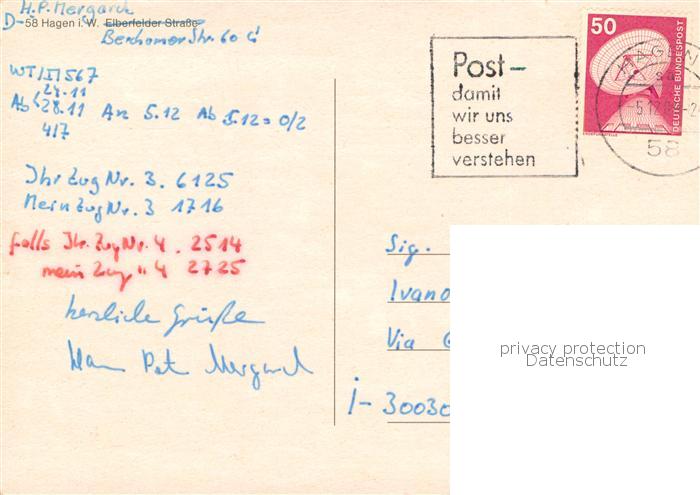 H.P. Mergard
D-58 Hagen i. W. Elberfelder Straße
Berchumer Str. 60
WT/II/567
24.11
Ab 28.11 An 5.12 Ab 5.12 = 0/2
417
Ihr Zug Nr. 3. 6125
Mein Zug Nr. 3 1716
falls Ihr Zug Nr. 4. 2514
mein Zug " 4 2725
herzliche Grüße
Hans Peter Mergard
Post-
damit
wir uns
besser
verstehen
50
DEUTSCHE BUNDESPOST
HAGEN
5.12
58
Sig.
Ivano
Via
I-30030
privacy protection
Datenschutz